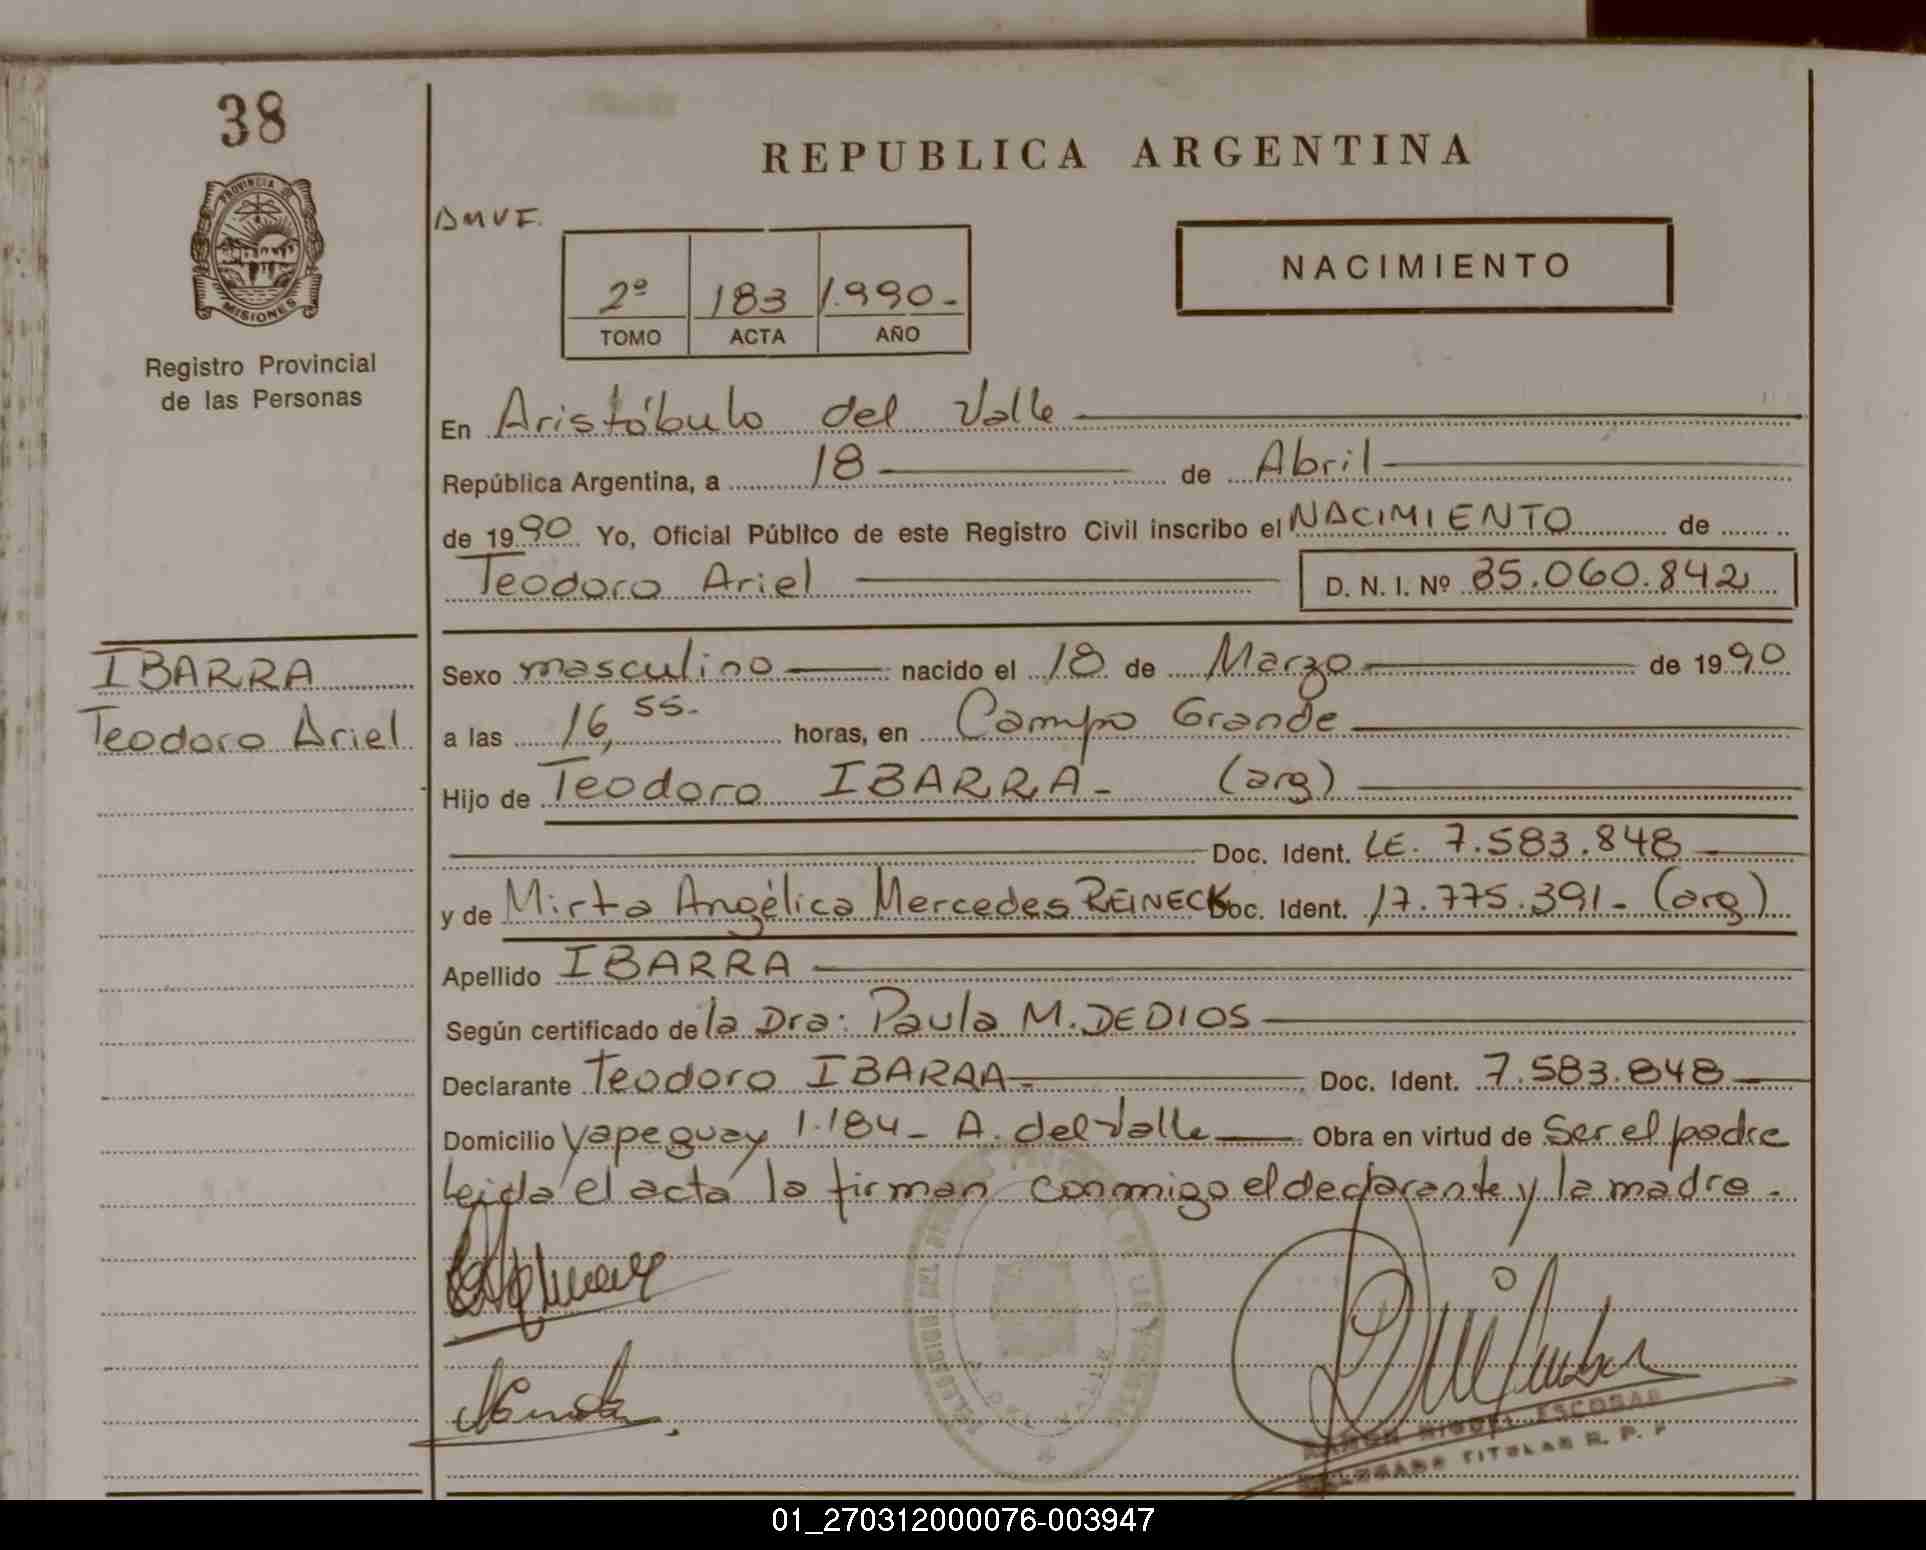 38
REPUBLICA ARGENTINA
PROVINCIA DE
MISIONES
Registro Provincial
de las Personas
DMVF.
2º 183 1.990-
TOMO ACTA AÑO
NACIMIENTO
En Aristóbulo del Valle
República Argentina, a 18 de Abril
de 1990 Yo, Oficial Público de este Registro Civil inscribo el NACIMIENTO de
Teodoro Ariel D. N. I. Nº 35.060.842
IBARRA
Teodoro Ariel
Sexo masculino nacido el 18 de Marzo de 1990
a las 16,55. horas, en Campo Grande
Hijo de Teodoro IBARRA- (arg)
Doc. Ident. LE. 7.583.848
y de Mirta Angélica Mercedes REINECK Doc. Ident. 17.775.391- (arg)
Apellido IBARRA
Según certificado de la Dra: Paula M. DEDIOS
Declarante Teodoro IBARRA- Doc. Ident. 7.583.848
Domicilio Yapeguay 1.184- A. del Valle Obra en virtud de Ser el padre
Leida el acta la firman conmigo el declarante y la madre.
RAMON MIGUEL ESCOBAR
DELEGADO TITULAR R. P. P
01_270312000076-003947